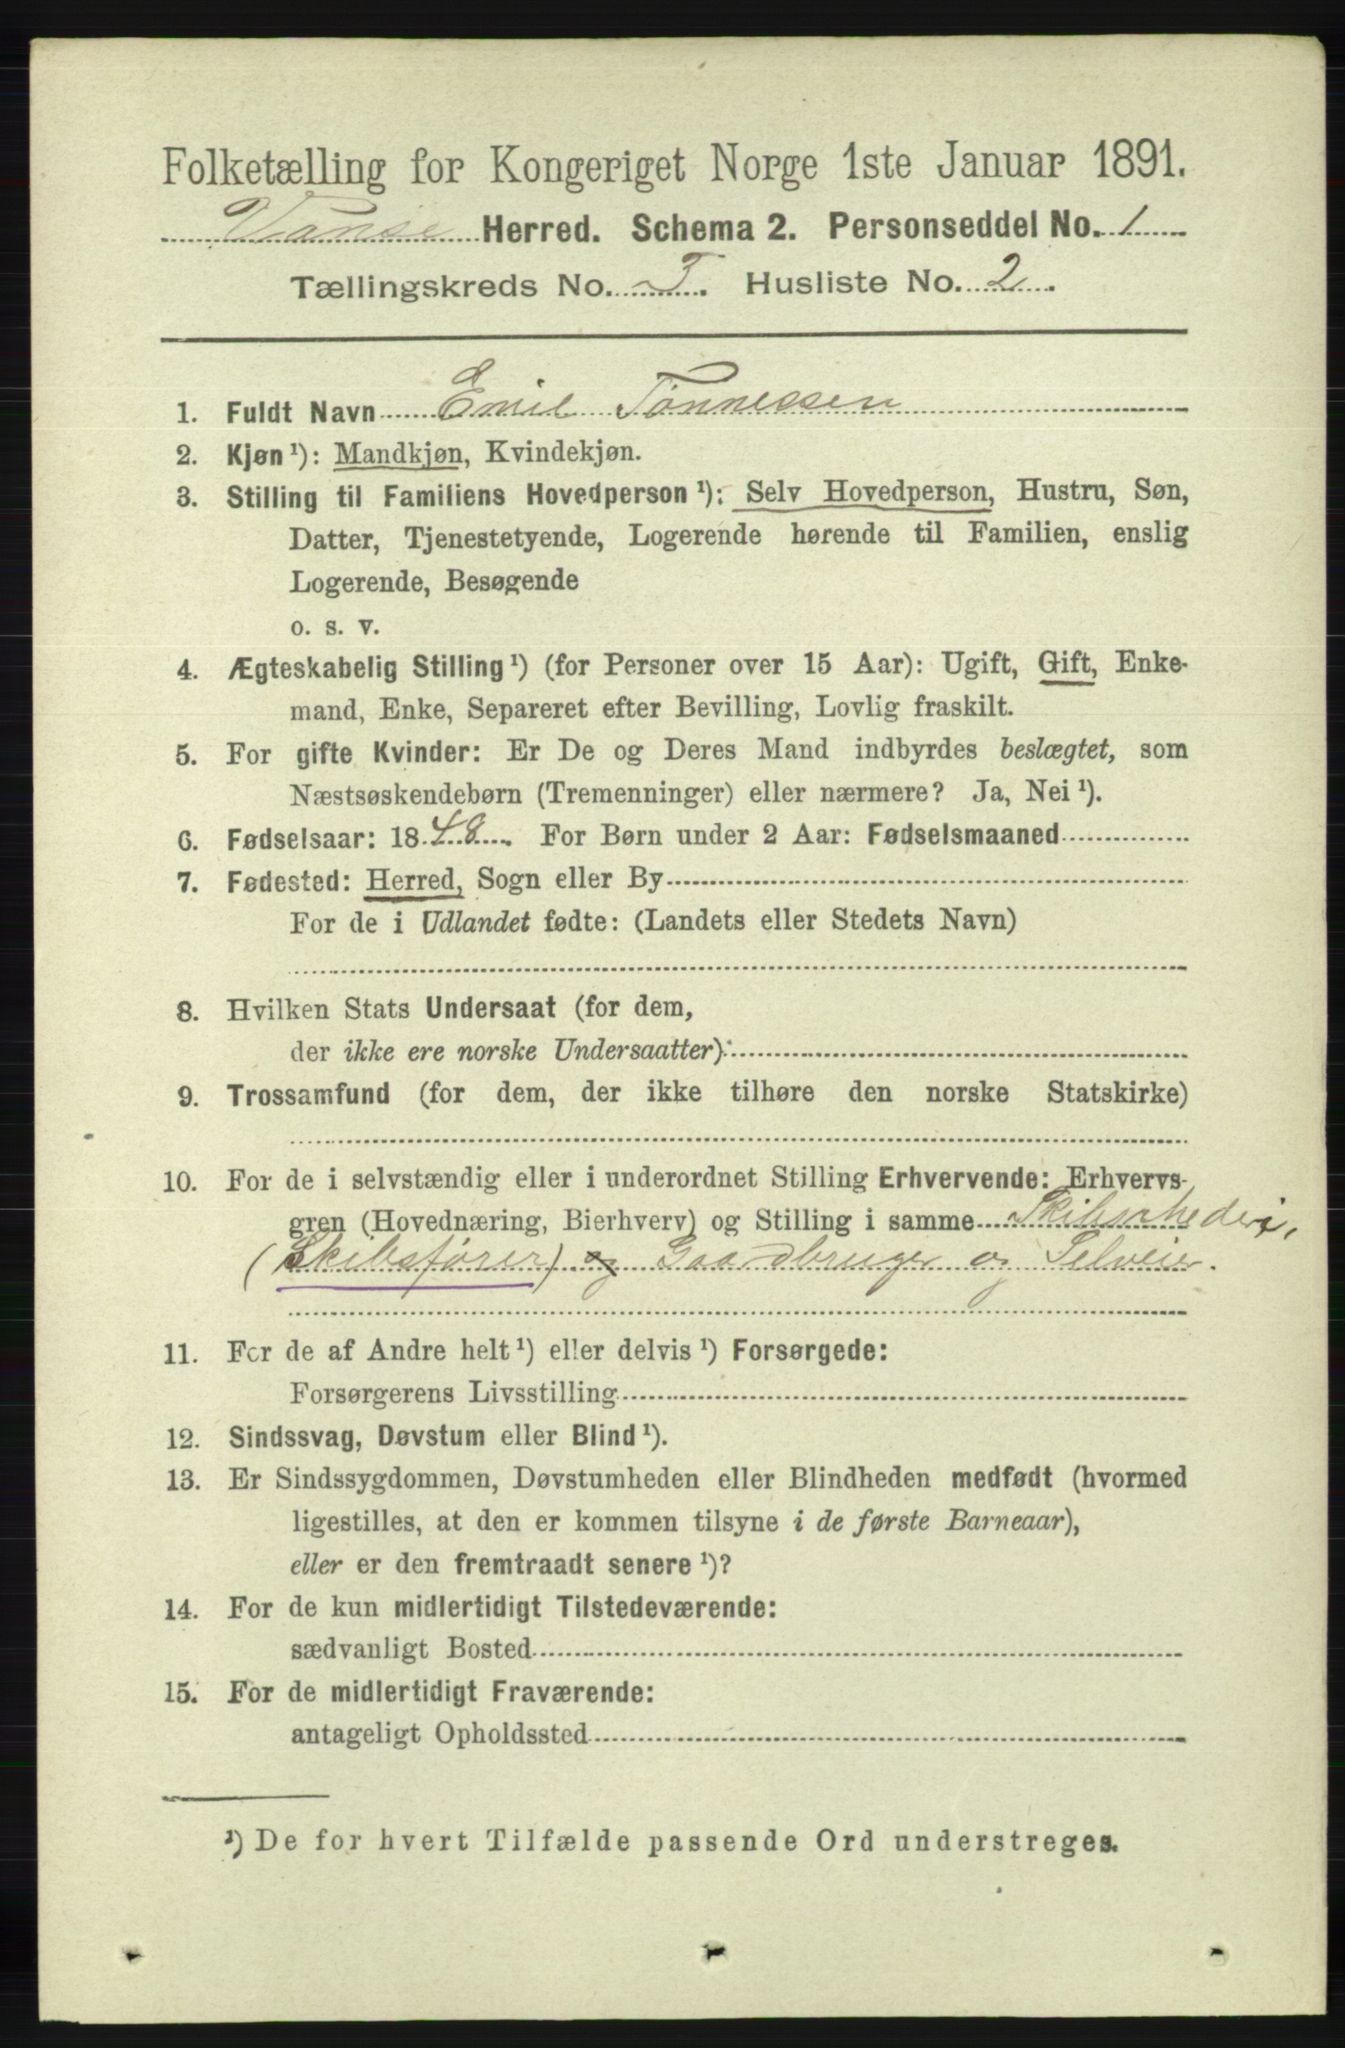 Folketælling for Kongeriget Norge 1ste Januar 1891.
Vanse Herred. Schema 2. Personseddel No. 1
Tællingskreds No. Husliste No. 2
1. Fuldt Navn Emil Tønnessen
2. Kjøn ¹): Mandkjøn, Kvindekjøn.
3. Stilling til Familiens Hovedperson ¹): Selv Hovedperson, Hustru, Søn,
Datter, Tjenestetyende, Logerende hørende til Familien, enslig
Logerende, Besøgende
o. s. v.
4. Ægteskabelig Stilling ¹) (for Personer over 15 Aar): Ugift, Gift, Enke-
mand, Enke, Separeret efter Bevilling, Lovlig fraskilt.
5. For gifte Kvinder: Er De og Deres Mand indbyrdes beslægtet, som
Næstsøskendebørn (Tremenninger) eller nærmere? Ja, Nei ¹).
6. Fødselsaar: 1848. For Børn under 2 Aar: Fødselsmaaned
7. Fødested: Herred, Sogn eller By
For de i Udlandet fødte: (Landets eller Stedets Navn)
8. Hvilken Stats Undersaat (for dem,
der ikke ere norske Undersaatter):
9. Trossamfund (for dem, der ikke tilhøre den norske Statskirke)
10. For de i selvstændig eller i underordnet Stilling Erhvervende: Erhvervs-
gren (Hovednæring, Bierhverv) og Stilling i samme Skibsrhederi,
(Skibsfører) og Gaardbruger og Selveier.
11. For de af Andre helt ¹) eller delvis ¹) Forsørgede:
Forsørgerens Livsstilling
12. Sindssvag, Døvstum eller Blind ¹).
13. Er Sindssygdommen, Døvstumheden eller Blindheden medfødt (hvormed
ligestilles, at den er kommen tilsyne i de første Barneaar),
eller er den fremtraadt senere ¹)?
14. For de kun midlertidigt Tilstedeværende:
sædvanligt Bosted
15. For de midlertidigt Fraværende:
antageligt Opholdssted
¹) De for hvert Tilfælde passende Ord understreges.